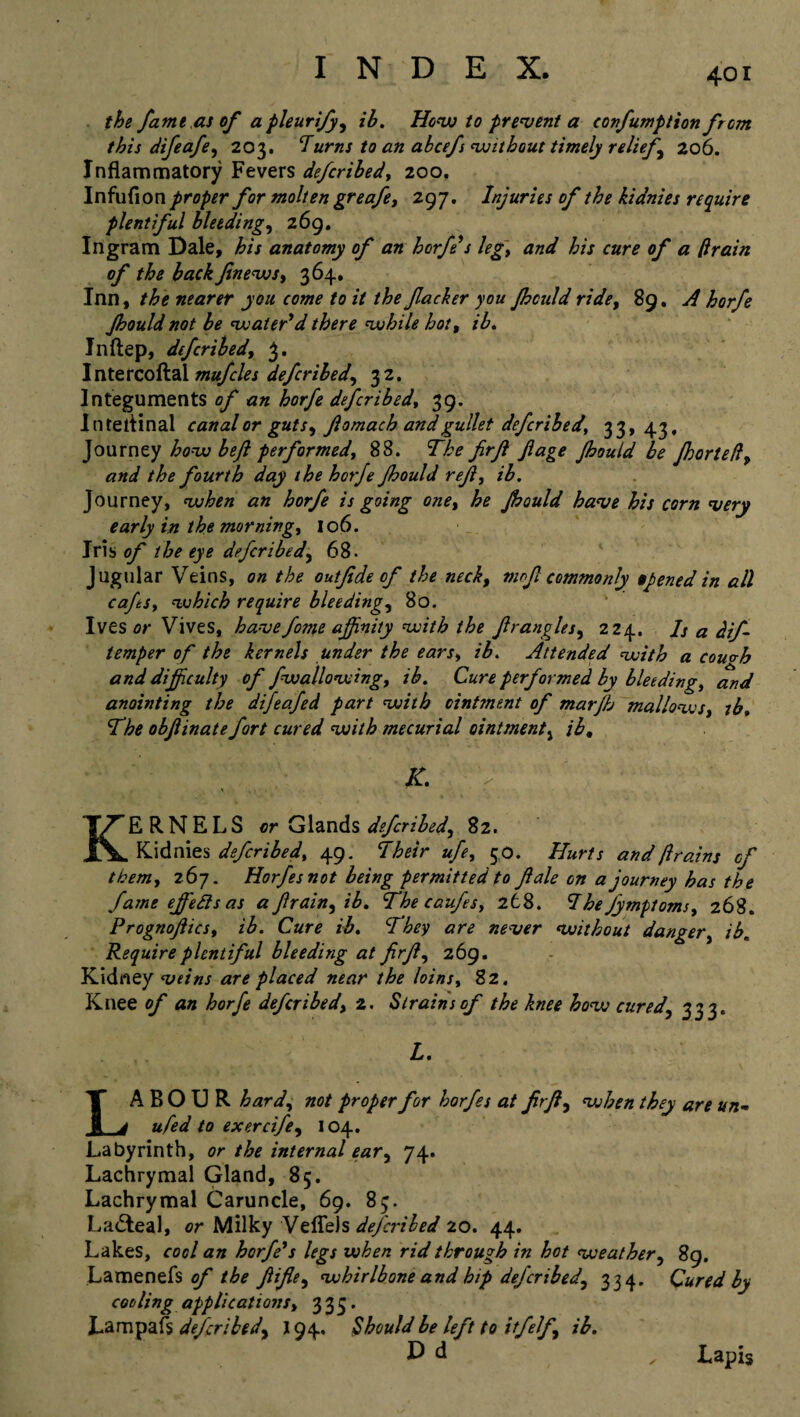 INDEX. 401
the ſame as of a pleuriſy, ib. How to prevent a conſumption from
this diſeaſe, 203. Turns to an abceſs without timely relief, 206.
Inflammatory Fevers deſcribed, 200.
Infuſion proper for molten greaſe, 297. Injuries of the kidnies require
plentiful bleeding, 269.
Ingram Dale, his anatomy of an horſe's leg, and his cure of a ſtrain
of the back ſinews, 364.
Inn, the nearer you come to it the ſlacker you ſhould ride, 89. A horſe
ſhould not be water'd there while hot, ib.
Inſtep, deſcribed, 3.
Intercoſtal muſcles deſcribed, 32.
Integuments of an horſe deſcribed, 39.
Inteſtinal canal or guts, ſtomach and gullet deſcribed, 33, 43.
Journey how beſt performed, 88. The firſt ſtage ſhould be ſhorteſt,
and the fourth day the horſe ſhould reſt, ib.
Journey, when an horſe is going one, he ſhould have his corn very
early in the morning, 106.
Iris of the eye deſcribed, 68.
Jugular Veins, on the outſide of the neck, moſt commonly opened in all
caſes, which require bleeding, 80.
Ives or Vives, have ſome affinity with the ſtrangles, 224. Is a diſ-
temper of the kernels under the ears, ib. Attended with a cough
and difficulty of ſwallowing, ib. Cure performed by bleeding, and
anointing the diſeaſed part with ointment of marſh mallows, ib.
The obſtinate ſort cured with mecurial ointment, ib.
K.
KERNELS or Glands deſcribed, 82.
Kidnies deſcribed, 49. Their uſe, 50. Hurts and ſtrains of
them, 267. Horſes not being permitted to ſtale on a journey has the
ſame effects as a ſtrain, ib. The cauſes, 268. The ſymptoms, 268.
Prognoſtics, ib. Cure ib. They are never without danger, ib.
Require plentiful bleeding at firſt, 269.
Kidney veins are placed near the loins, 82.
Knee of an horſe deſcribed, 2. Strains of the knee how cured, 333.
L.
LABOUR hard, not proper for horſes at firſt, when they are un-
uſed to exerciſe, 104.
Labyrinth, or the internal ear, 74.
Lachrymal Gland, 85.
Lachrymal Caruncle, 69. 85.
Lacteal, or Milky Veſſels deſcribed 20. 44.
Lakes, cool an horſe's legs when rid through in hot weather, 89.
Lameneſs of the ſtifle, whirlbone and hip deſcribed, 334. Cured by
cooling applications, 335.
Lampaſs deſcribed, 194. Should be left to itſelf, ib.
D d Lapis